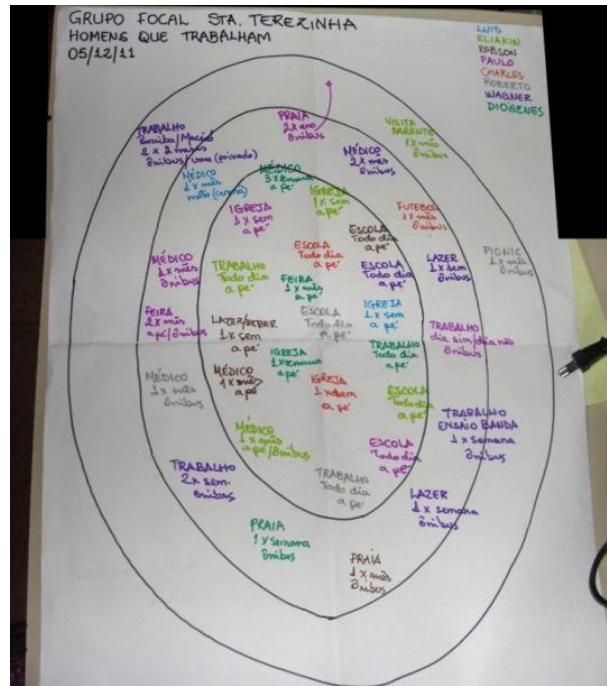 GRUPO FOCAL STA. TEREZINHA
HOMENS QUE TRABALHAM
05/12/11
LUIS
ELIAKIN
ROBSON
PAULO
CHARLES
ROBERTO
WAGNER
DIÓGENES
PRAIA
2x ano
ônibus
TRABALHO
Paraíba/Maceió
2 x 2 meses
ônibus/van (privado)
VISITA
PARENTE
1x mês
ônibus
MÉDICO
2x mês
ônibus
MÉDICO
1x mês
moto (carona)
MÉDICO
3x semana
a pé
IGREJA
1x sem
a pé
IGREJA
1x sem
a pé
FUTEBOL
1x mês
ônibus
ESCOLA
Todo dia
a pé
ESCOLA
Todo dia
a pé
ESCOLA
Todo dia
a pé
LAZER
1x sem
ônibus
PICNIC
1x mês
ônibus
MÉDICO
1x mês
ônibus
TRABALHO
Todo dia
a pé
FEIRA
1x mês
a pé
FEIRA
2x mês
a pé/ônibus
LAZER/BEBER
1x sem
a pé
ESCOLA
Todo dia
a pé
IGREJA
1x sem
a pé
TRABALHO
dia sim/dia não
ônibus
TRABALHO
Todo dia
a pé
IGREJA
1x semana
a pé
MÉDICO
1x mês
ônibus
MÉDICO
1x mês
a pé
IGREJA
1x sem
a pé
ESCOLA
Todo dia
a pé
TRABALHO
ENSAIO BANDA
1x semana
ônibus
MÉDICO
1x mês
a pé/ônibus
ESCOLA
Todo dia
a pé
TRABALHO
2x sem.
ônibus
TRABALHO
Todo dia
a pé
LAZER
1x semana
ônibus
PRAIA
1x semana
ônibus
PRAIA
1x mês
ônibus